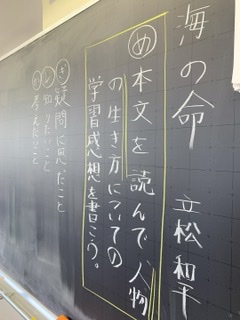 海の命　立松 和平
め 本文を読んで、人物
の生き方についての
学習感想を書こう。
ぎ 疑問に思ったこと
し 知りたいこと
考えたいこと